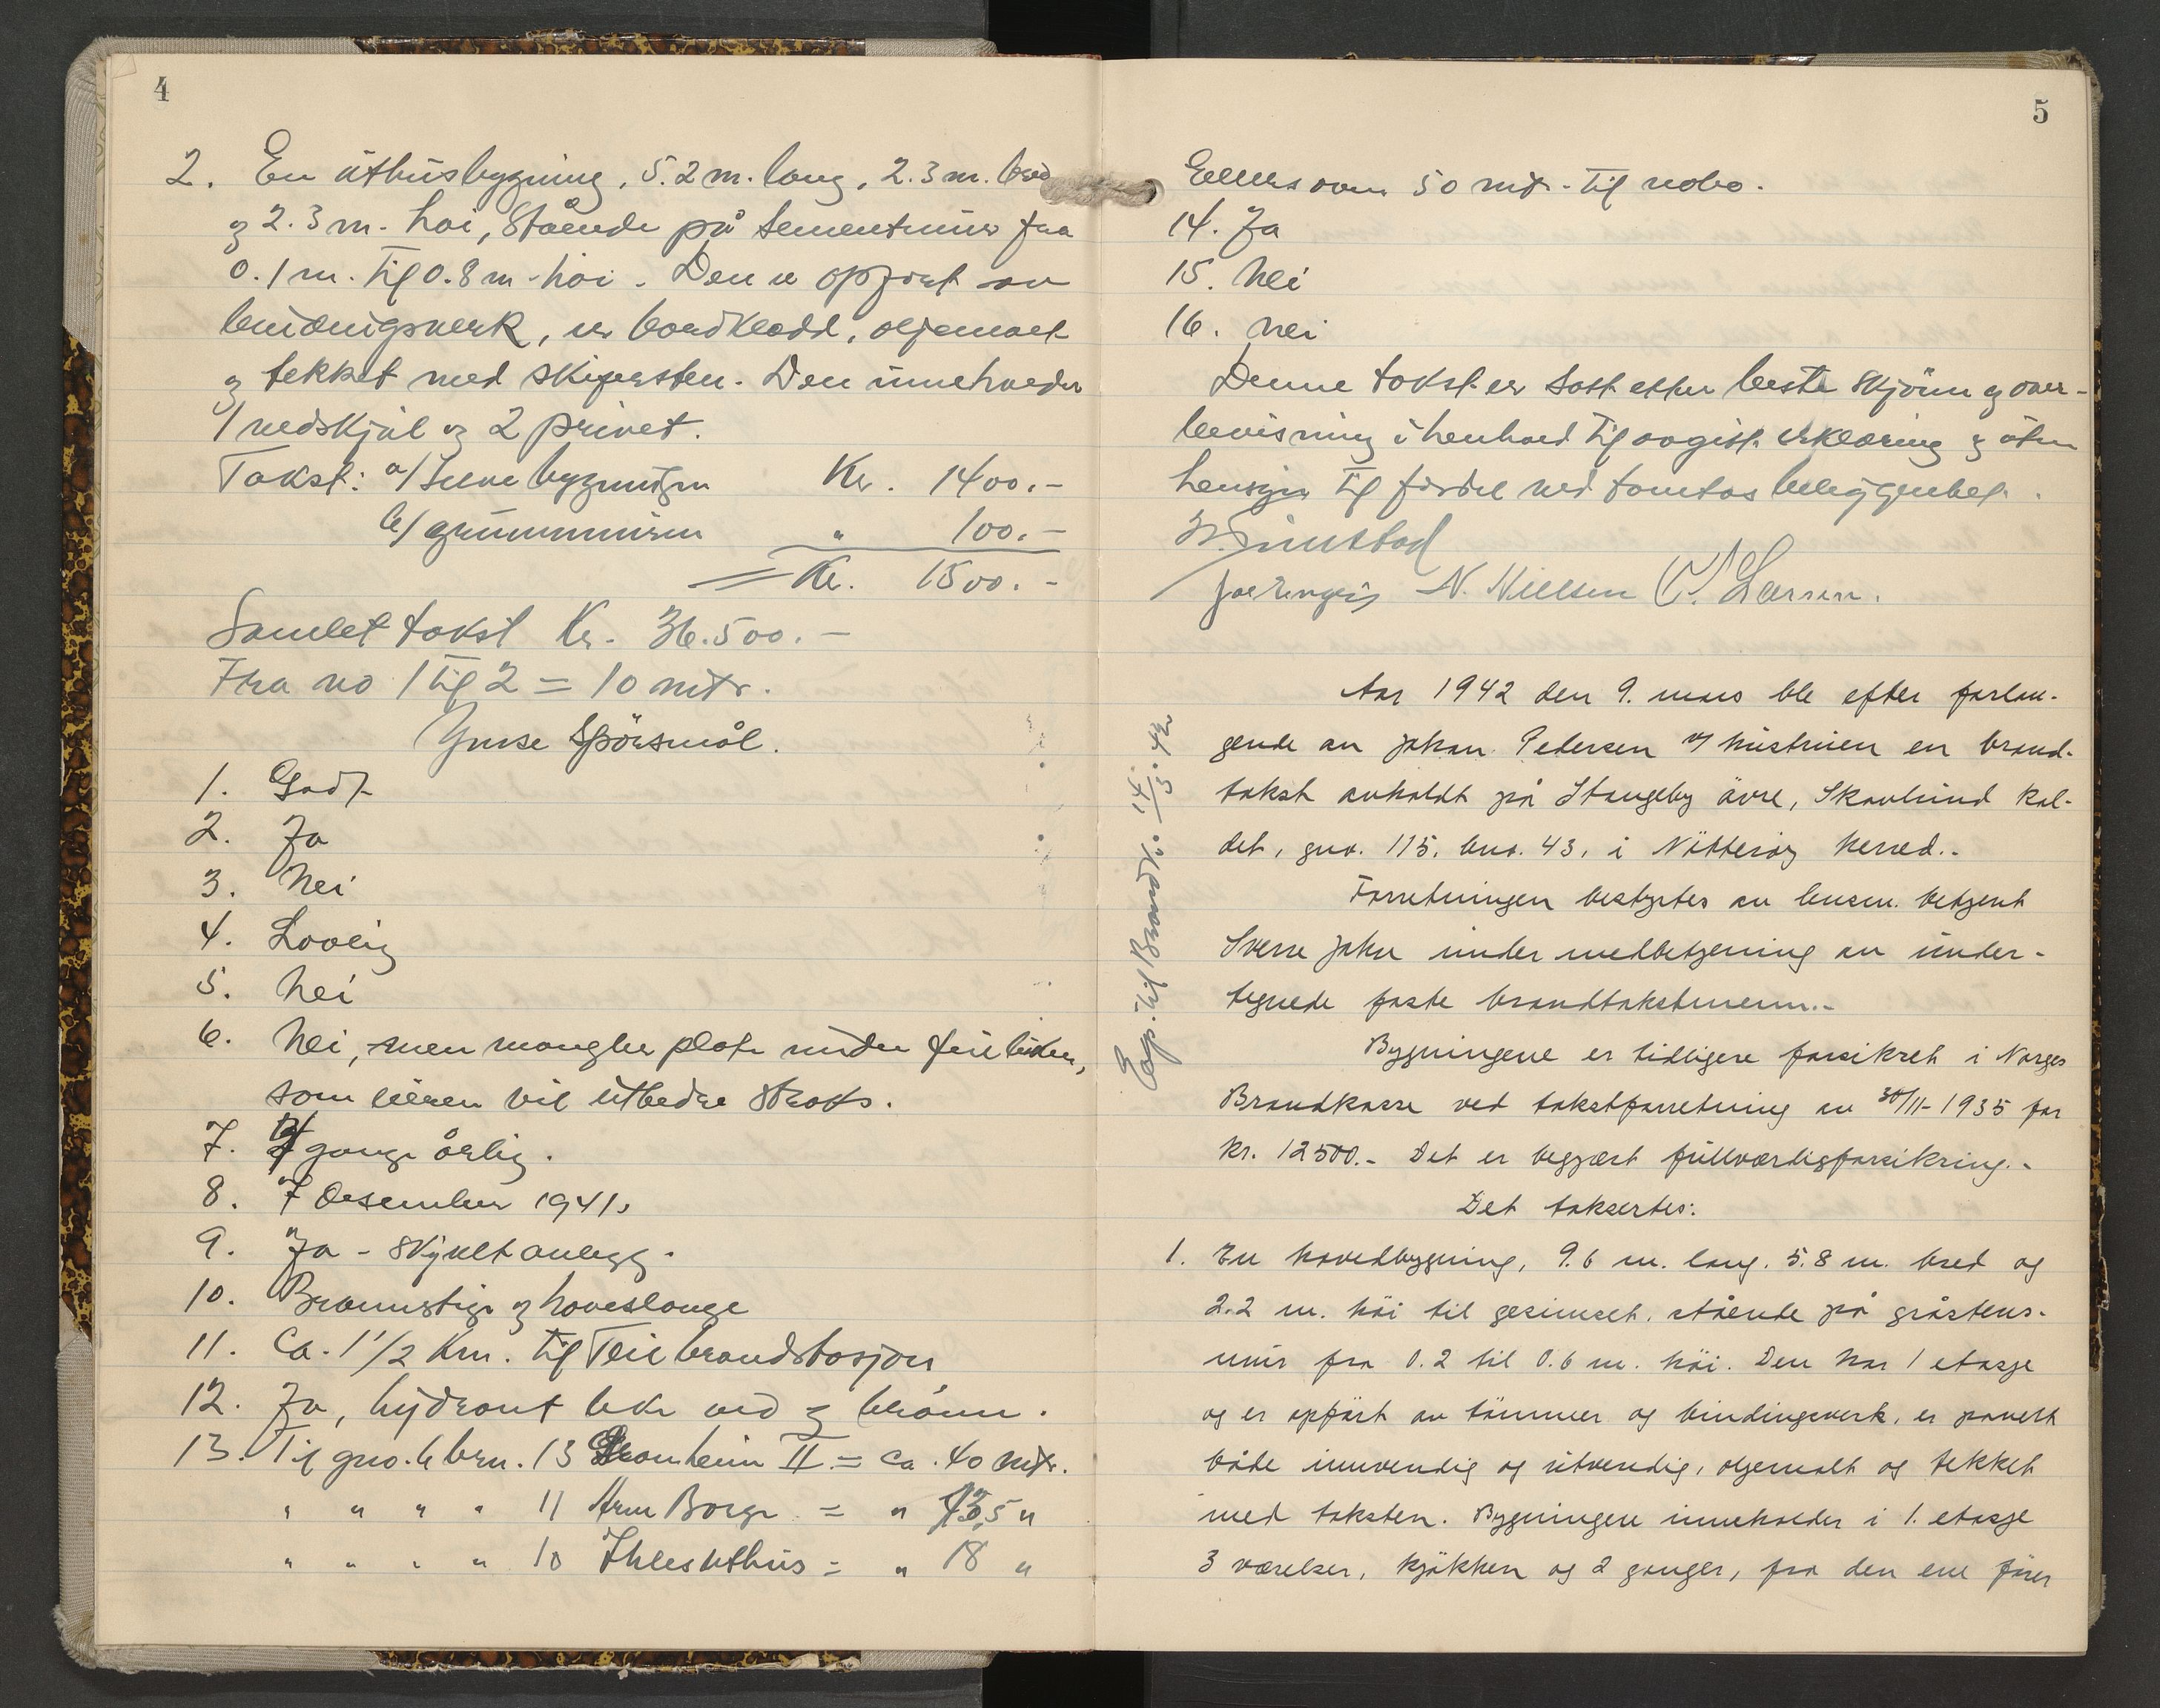 4
2. En uthusbygning, 5.2 m. lang, 2.3 m. bred
og 2.3 m. høi, stående på sementmur fra
0.1 m. til 0.8 m. høi. Den er opført av
bindingsverk, er bordkledd, oljemalt
og tekket med skifersten. Den inneholder
1 vedskjul og 2 privet.
Takst: a/ Selve bygningen Kr. 1400.-
b/ grunnmuren " 100.-
= Kr. 1500.-
Samlet takst Kr. 36.500.-
Fra no 1 til 2 = 10 mtr.
Ymse Spørsmål.
1. Godt
2. Ja
3. Nei
4. Lovlig
5. Nei
6. Nei, men mangler plate under
som eieren vil utbedre straks.
7. gange årlig.
8. 7 desember 1941.
9. Ja - skjult anlegg.
10. Brannstige og haveslange
11. Ca. 1 1/2 Km. til Teie brandstasjon
12. Ja, hydrant like ved og brønn.
13. Til gno. 6 brn. 13 II = ca. 40 mtr.
" " " " 11 Arne Borge = " 13,5 "
" " " " 10 Ihles uthus = " 18 "
5
Ellers over 50 mtr. til nabo.
14. Ja
15. Nei
16. Nei
Denne takst er satt etter beste skjönn og over-
bevisning i henhold til avgitt erklæring og uten
hensyn til fordel ved tomtas beliggenhet.
N. Nielsen Larsen.
Aar 1942 den 9. mars ble efter forlan-
gende av Johan Pedersen og hustruen en brand-
takst avholdt på Stangeby övre, Skovlund kal-
det, gno. 115, bno. 43, i Nötteröy herred.-
Forretningen bestyrtes av lensm. betjent
Sverre Jahn under medbetjening av under-
tegnede faste brandtakstmenn.-
Bygningene er tidligere forsikret i Norges
Brandkasse ved takstforretning av 30/11-1935 for
kr. 12500.- Det er begjært fullverdigforsikring.-
Det taksertes:
1. En hovedbygning, 9.6 m. lang, 5.8 m. bred og
2.2 m. höi til gesimset, stående på gråstens-
mur fra 0.2 til 0.6 m. höi. Den har 1 etasje
og er opfört av tömmer og bindingsverk, er panelt
både innvendig og utvendig, oljemalt og tekket
med taksten. Bygningen inneholder i 1. etasje
3 værelser, kjökken og 2 ganger, fra den ene förer
Exp. til Brandk. 14/3. 42